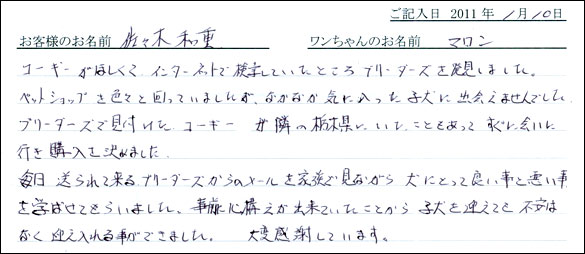 ご記入日 2011 年 1月 10日
お客様のお名前 佐々木 和重 ワンちゃんのお名前 マロン
コーギーがほしくて、インターネットで検索していたところ ブリーダーズを発見しました。
ペットショップを色々と回っていましたが、なかなか気に入った子犬に出会えませんでした。
ブリーダーズで見付けた コーギー が隣の栃木県に、いたこともあって すぐに会いに
行き購入を決めました。
毎日 送られて来るブリーダーズからのメールを家族で見ながら 犬にとって良い事と悪い事
を学ばせてもらいました。 事前に心構えが出来ていたことから 子犬を迎えても 不安は
なく 迎え入れる事ができました。 大変感謝しています。